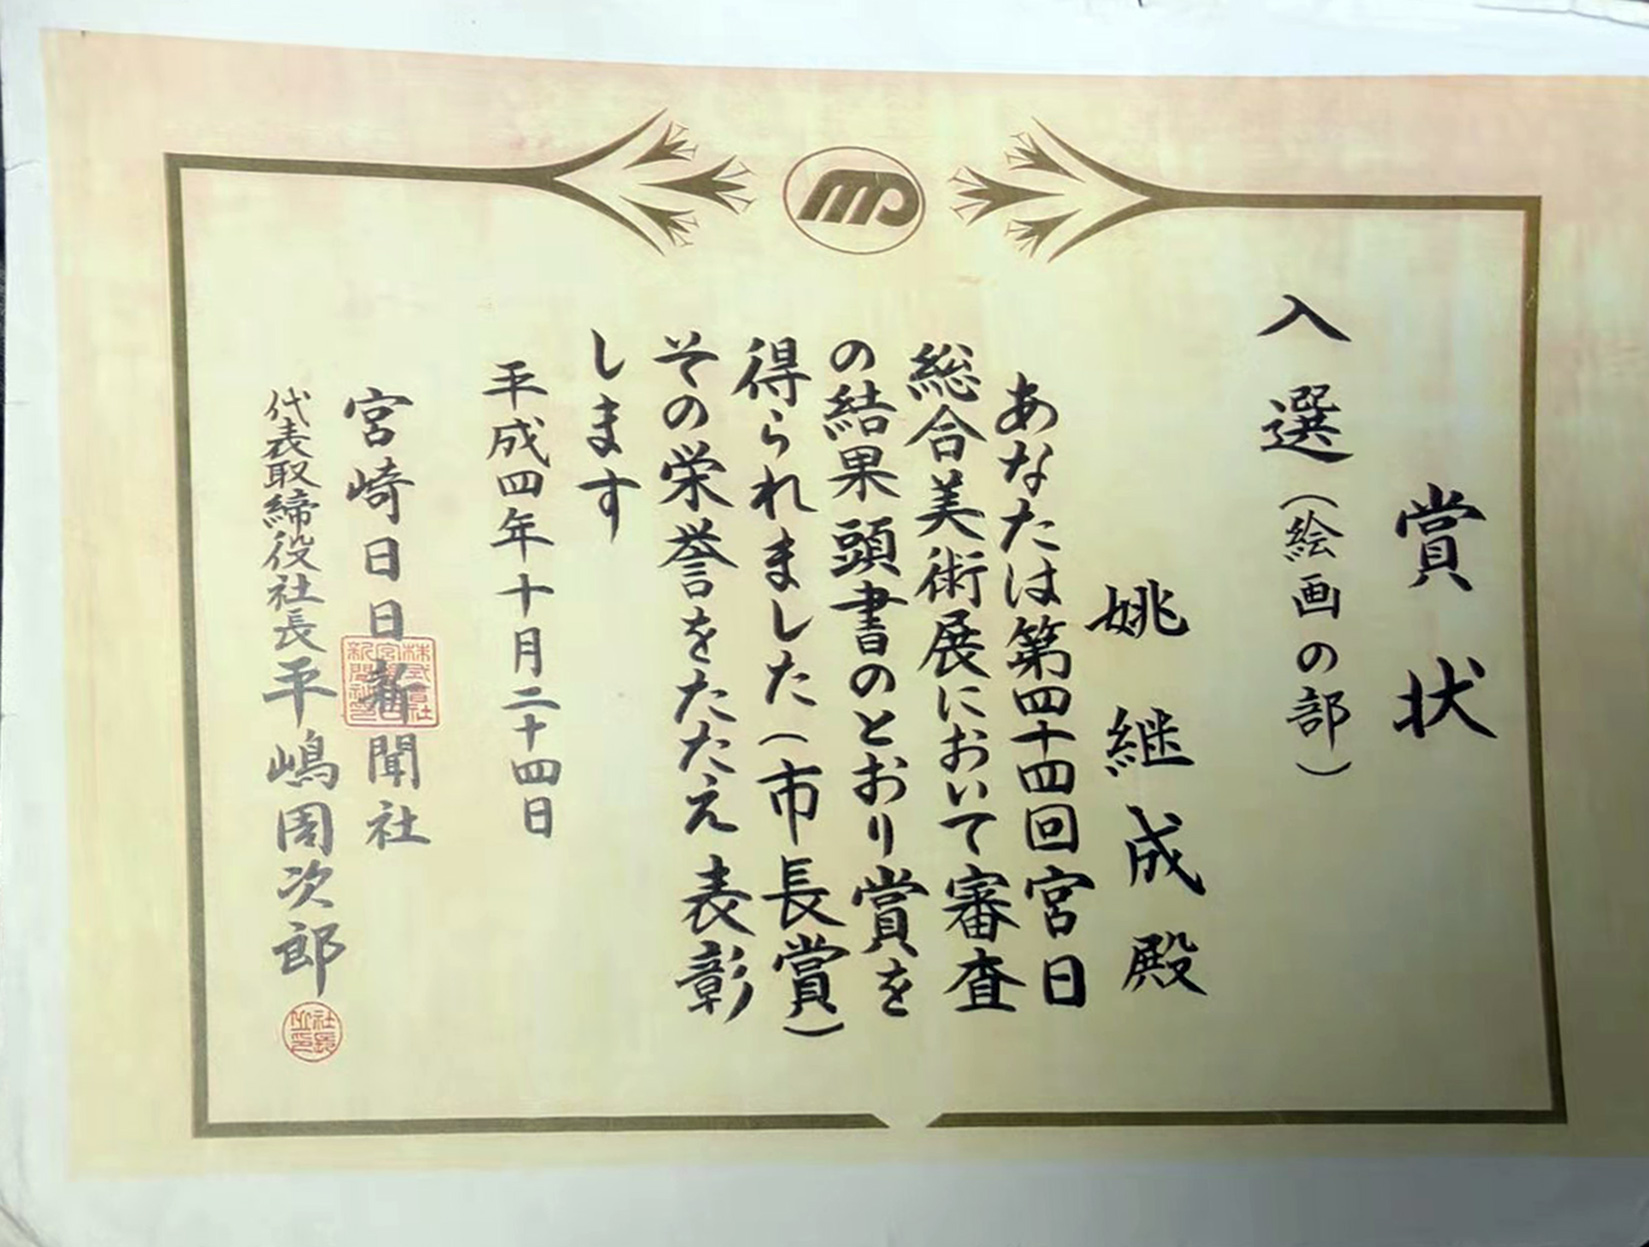 賞状
入選（絵画の部）
姚継成殿
あなたは第四十四回宮日
総合美術展において審査
の結果頭書のとおり賞を
得られました（市長賞）
その栄誉をたたえ表彰
します
平成四年十月二十四日
宮崎日日新聞社
代表取締役社長平嶋周次郎